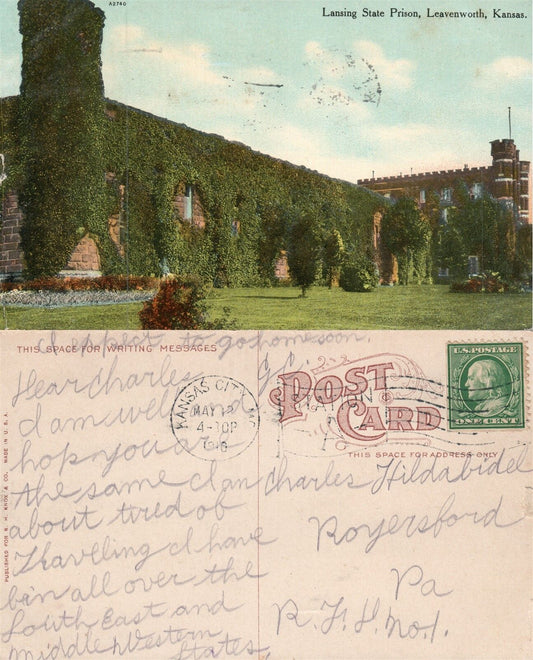 A2740
Lansing State Prison, Leavenworth, Kansas.
I expect to go home soon.
THIS SPACE FOR WRITING MESSAGES
POST CARD
THIS SPACE FOR ADDRESS ONLY
U.S. POSTAGE
ONE CENT
KANSAS CITY
MAY 12
4-30P
PUBLISHED FOR S. H. KNOX & CO. MADE IN U. S. A.
Dear Charles
I am well and
hope you are
the same I am
about tired of
Traveling I have
bin all over the
South East and
Middle Western
States
Charles Hildabidel
Royersford
Pa
R. F. D. No 1.